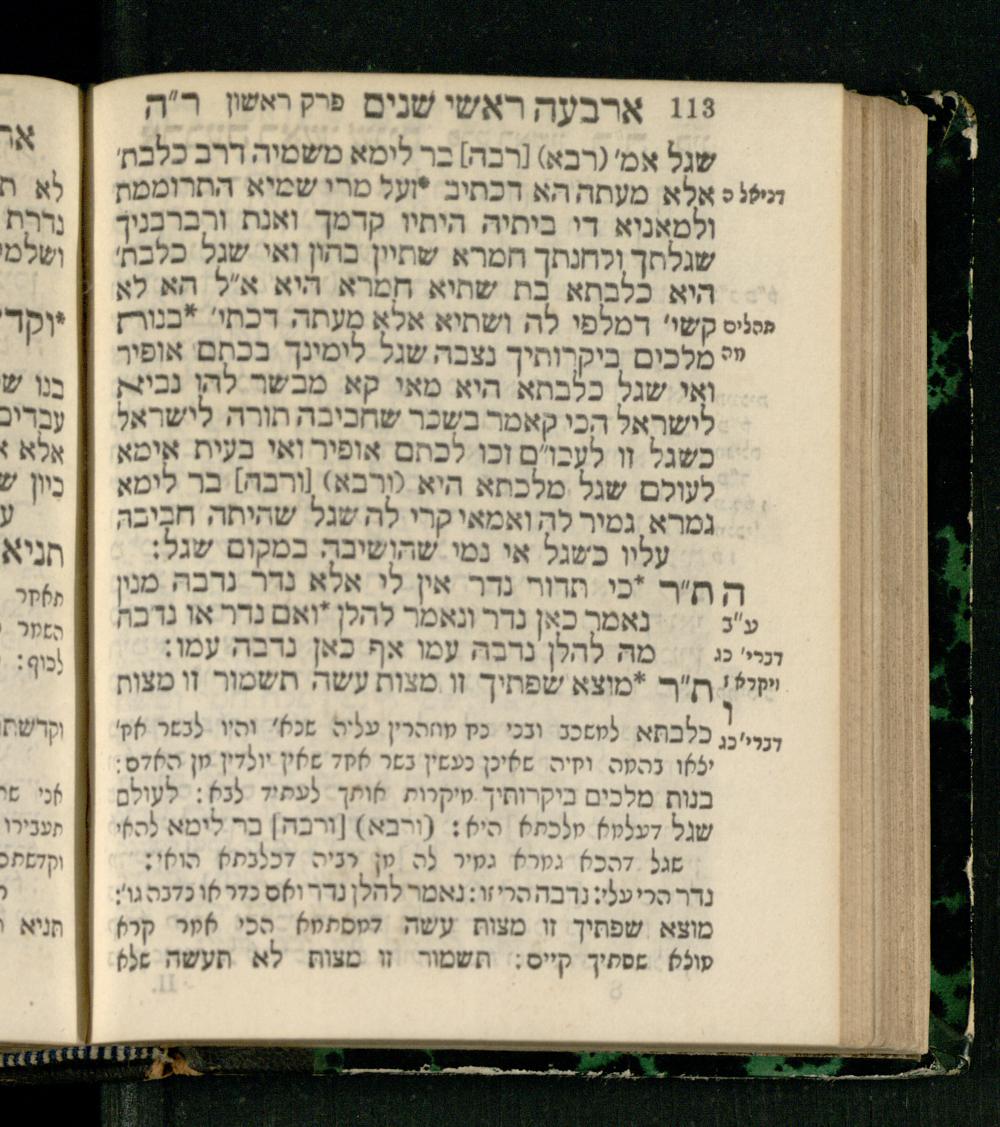 113 ארבעה ראשי שנים פרק ראשון ר"ה
שגל אמ' (רבא) [רבה] בר לימא משמיה דרב כלבת'
דניאל ה אלא מעתה הא דכתיב *ועל מרי שמיא התרוממת
ולמאניא די ביתיה היתיו קדמך ואנת ורברבניך
שגלתך ולחנתך חמרא שתיין בהון ואי שגל כלבת'
היא כלבתא בת שתיא חמרא היא א"ל הא לא
תהלים קשי' דמלפי לה ושתיא אלא מעתה דכתי' *בנות
מה מלכים ביקרותיך נצבה שגל לימינך בכתם אופיר
ואי שגל כלבתא היא מאי קא מבשר להו נביא
לישראל הכי קאמר בשכר שחביבה תורה לישראל
כשגל זו לעכו"ם זכו לכתם אופיר ואי בעית אימא
לעולם שגל מלכתא היא (ורבא) [ורבה] בר לימא
גמרא גמיר לה ואמאי קרי לה שגל שהיתה חביבה
עליו כשגל אי נמי שהושיבה במקום שגל:
ה ת"ר *כי תדור נדר אין לי אלא נדר נדבה מנין
ע"ב נאמר כאן נדר ונאמר להלן *ואם נדר או נדבה
דברי' כג מה להלן נדבה עמו אף כאן נדבה עמו:
ויקרא ז ת"ר *מוצא שפתיך זו מצות עשה תשמור זו מצות
ו
דברי' כג כלבתא למשכב ובני נח מוזהרין עליה שנא' והיו לבשר אח'
יצאו בהמה וחיה שאינן נעשין בשר אחד שאין יולדין מן האדם:
בנות מלכים ביקרותיך מיקרות אותך לעתיד לבא: לעולם
שגל דעלמא מלכתא היא: (ורבא) [ורבה] בר לימא להאי
שגל דהכא גמרא גמיר לה מן רביה דכלבתא הואי:
נדר הרי עלי: נדבה הרי זו: נאמר להלן נדר ואם נדר או נדבה גו':
מוצא שפתיך זו מצות עשה דמסתמא הכי אמר קרא
מוצא שפתיך קיים: תשמור זו מצות לא תעשה שלא
8 II.
אר
לא ת
נדרת
ושלמי
*וקדש
בנו ש
עבדים
אלא א
כיון ש
ע
תניא
תאחר
השמר
לכוף:
וקדשת
אני
תעבירו
תניא